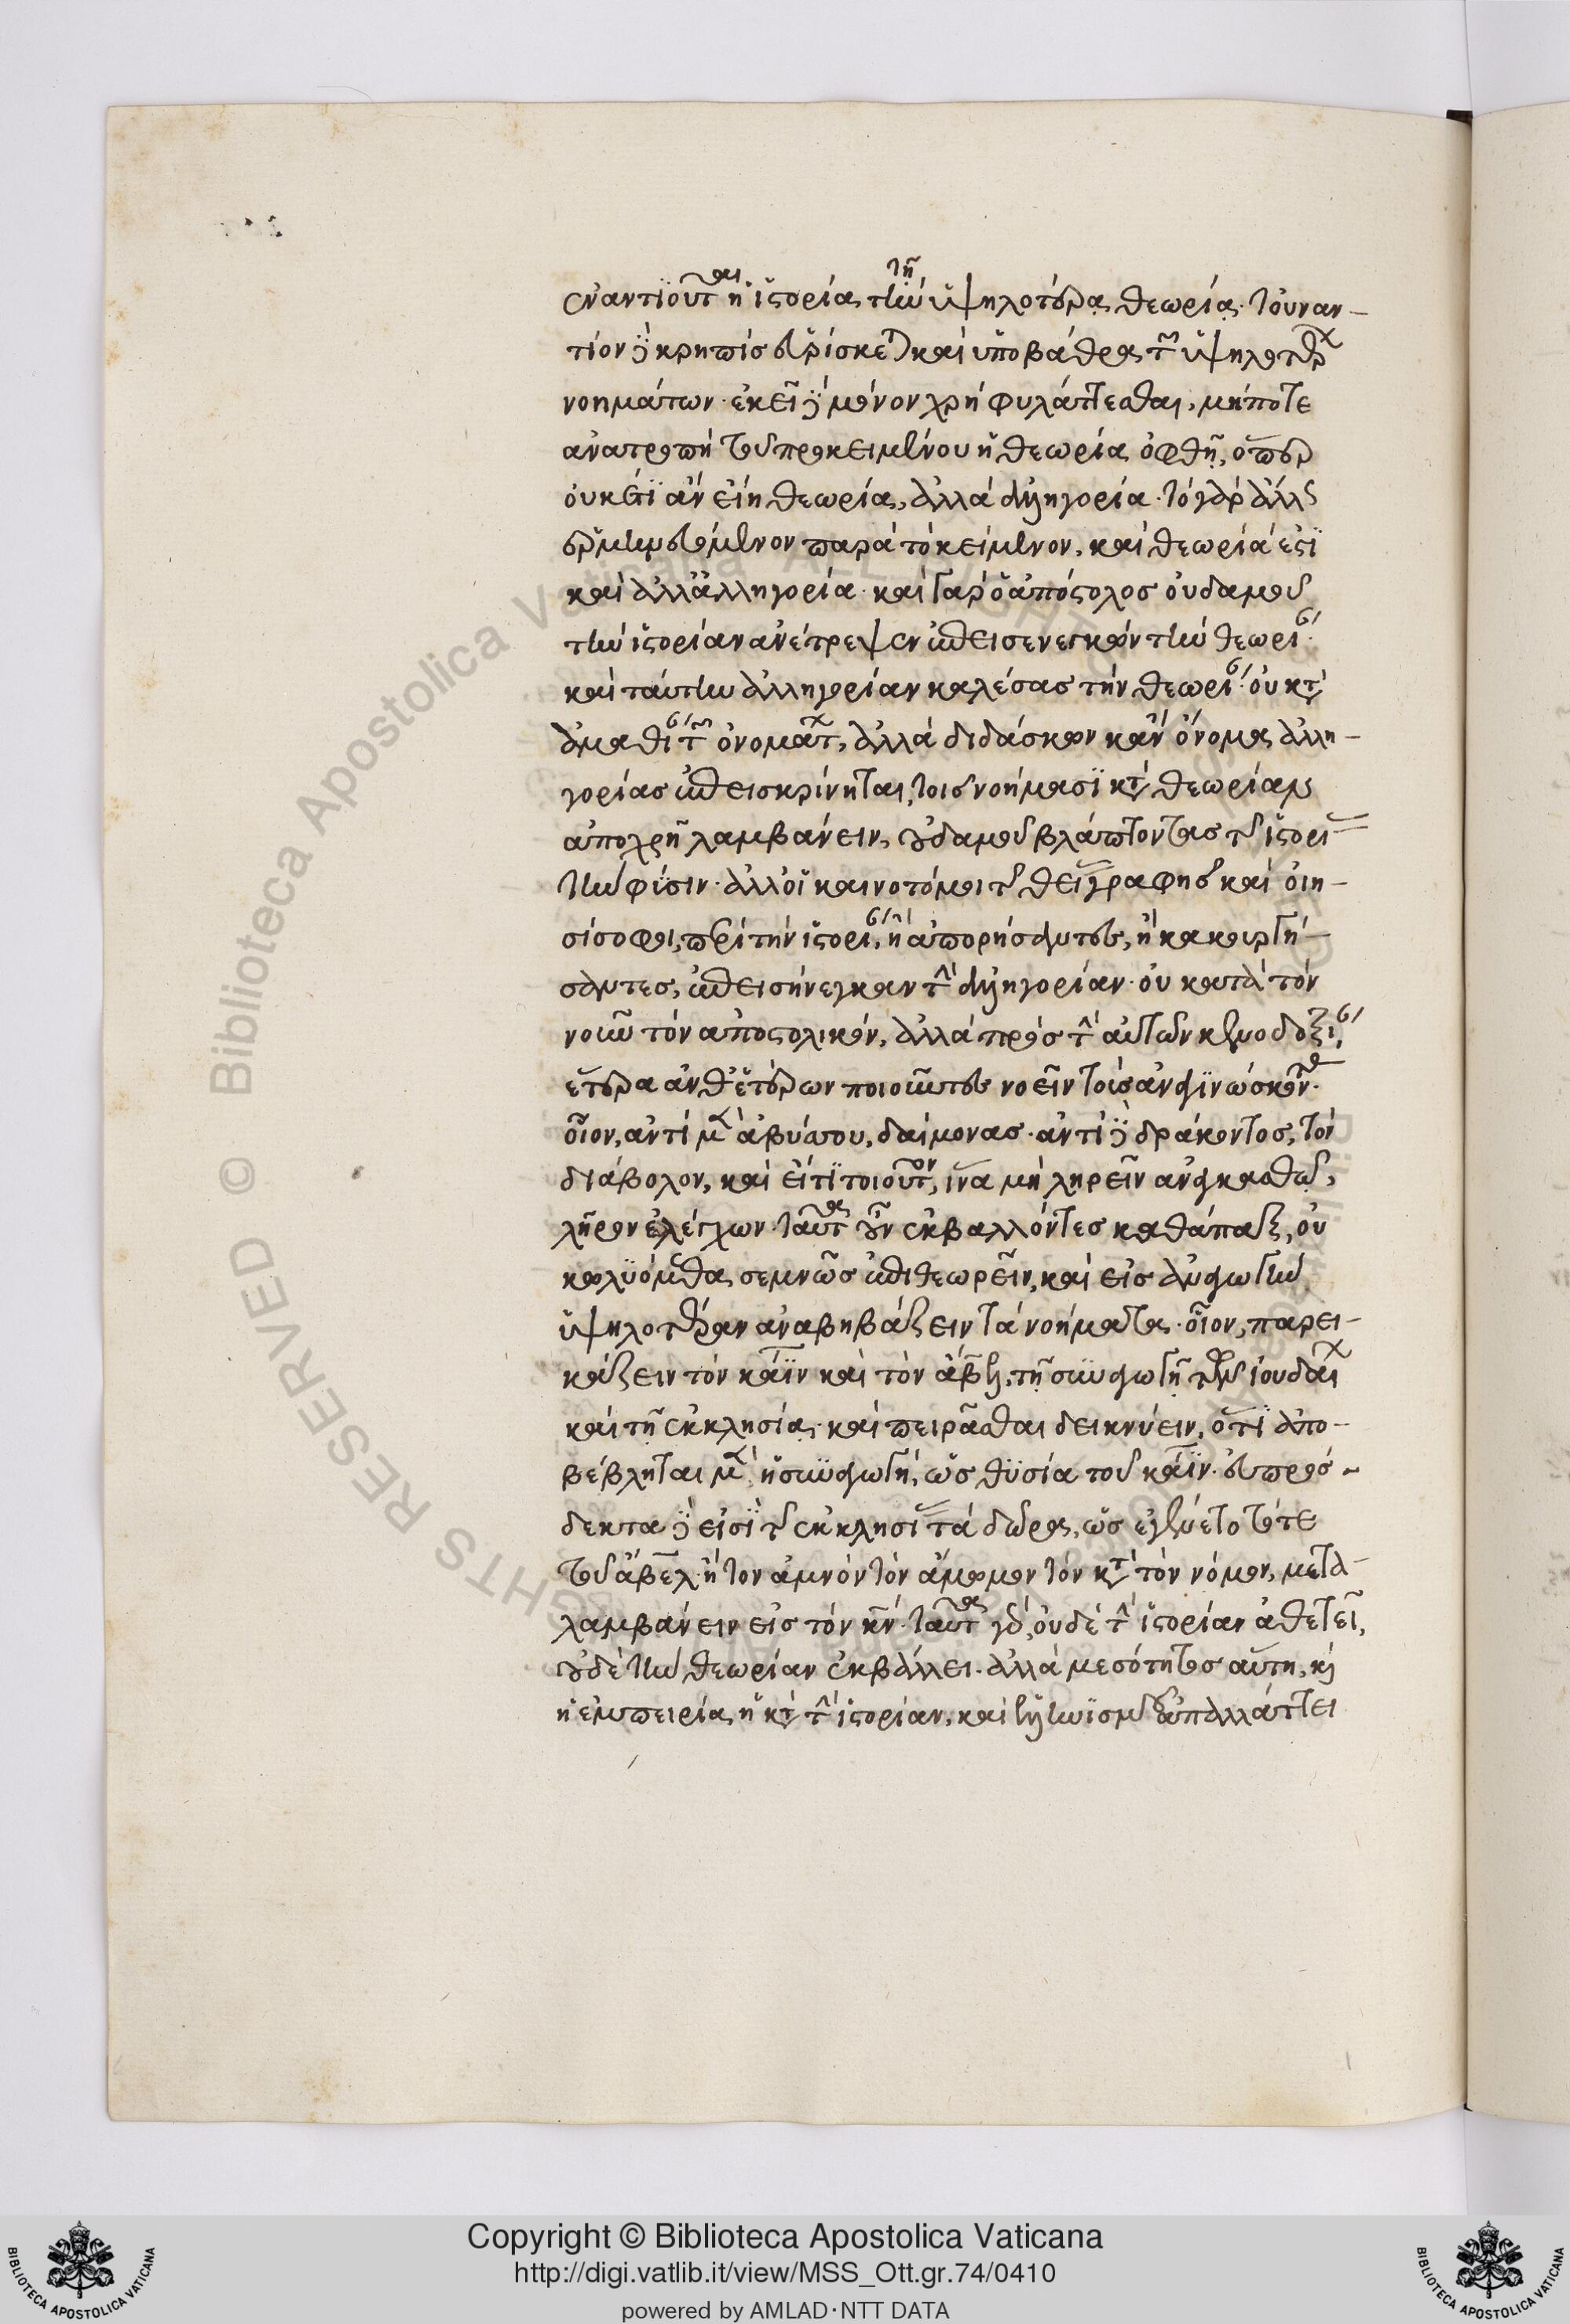 ἐναντιοῦται ἡ ἱστορία τῇ ὑψηλοτέρᾳ θεωρίᾳ· τοὐναν-
τίον δὲ κρηπὶς εὑρίσκεται καὶ ὑποβάθρα τῶν ὑψηλοτέρων
νοημάτων· ἐκεῖνο δὲ μόνον χρὴ φυλάττεσθαι, μήποτε
ἀνατροπὴ τοῦ προκειμένου ἡ θεωρία ὀφθῇ, ὅπερ
οὐκέτι ἂν εἴη θεωρία, ἀλλὰ ἀλληγορία· τὸ γὰρ ἄλλως
ἑρμηνευόμενον παρὰ τὸ κείμενον,
καὶ γὰρ ὁ ἀπόστολος οὐδαμοῦ
τὴν ἱστορίαν ἀνέτρεψεν ἐπεισενεγκὼν τὴν θεωρίαν
καὶ ταύτην ἀλληγορίαν καλέσας τὴν θεωρίαν· οὐ κατὰ
ἀμαθίαν τῶν ὀνομάτων, ἀλλὰ διδάσκων κἂν ὄνομα ἀλλη-
γορίας ἐπεισκρίνηται, τοῖς νοήμασι κατὰ θεωρίαν
ἀπολαμβάνειν, οὐδαμοῦ βλάπτοντας τῆς ἱστορίας
τὴν φύσιν· ἀλλ' οἱ καινοτόμοι τῆς θείας γραφῆς καὶ οἰη-
σίσοφοι, περὶ τὴν ἱστορίαν, ἢ ἀπορήσαντες, ἢ κακουργή-
σαντες, ἐπεισήνεγκαν τὴν ἀλληγορίαν· οὐ κατὰ τὸν
νοῦν τὸν ἀποστολικόν, ἀλλὰ πρὸς τὴν αὐτῶν κενοδοξίαν,
ἕτερα ἀνθ' ἑτέρων ποιοῦντες νοεῖν τοὺς ἀναγινώσκοντας·
οἷον, ἀντὶ μὲν ἀβύσσου, δαίμονας· ἀντὶ δὲ δράκοντος, τὸν
διάβολον, καὶ εἴ τι τοιοῦτον, ἵνα μὴ ληρεῖν ἀναγκασθῶ,
λῆρον ἐλέγχων· ταῦτα οὖν ἐκβαλλόντες καθάπαξ, οὐ
κωλυόμεθα σεμνῶς ἐπιθεωρεῖν, καὶ εἰς ἀναγωγὴν
ὑψηλοτέραν ἀναβηβάζειν τὰ νοήματα· οἷον, παρει-
κάζειν τὸν κάϊν καὶ τὸν ἄβελ, τῇ συναγωγῇ τῶν ἰουδαίων
καὶ τῇ ἐκκλησίᾳ· καὶ πειρᾶσθαι δεικνύειν, ὅτι ἀπο-
βέβληται μὲν ἡ συναγωγή, ὡς θυσία τοῦ κάϊν· εὐπρόσ-
δεκτα δὲ εἰσὶ τῆς ἐκκλησίας τὰ δῶρα, ὡς ἐγένετο τότε
τοῦ ἄβελ· ἢ τὸν ἀμνὸν τὸν ἄμωμον τὸν κατὰ τὸν νόμον, μετα-
λαμβάνειν εἰς τὸν κύριον· ταῦτα γὰρ, οὐδὲ τὴν ἱστορίαν ἀθετεῖ,
οὐδὲ τὴν θεωρίαν ἐκβάλλει· ἀλλὰ μεσότητος αὕτη, καὶ
ἡ ἐμπειρία, ἡ κατὰ τὴν ἱστορίαν, καὶ ἑλληνισμοῦ ἀπαλλάττει